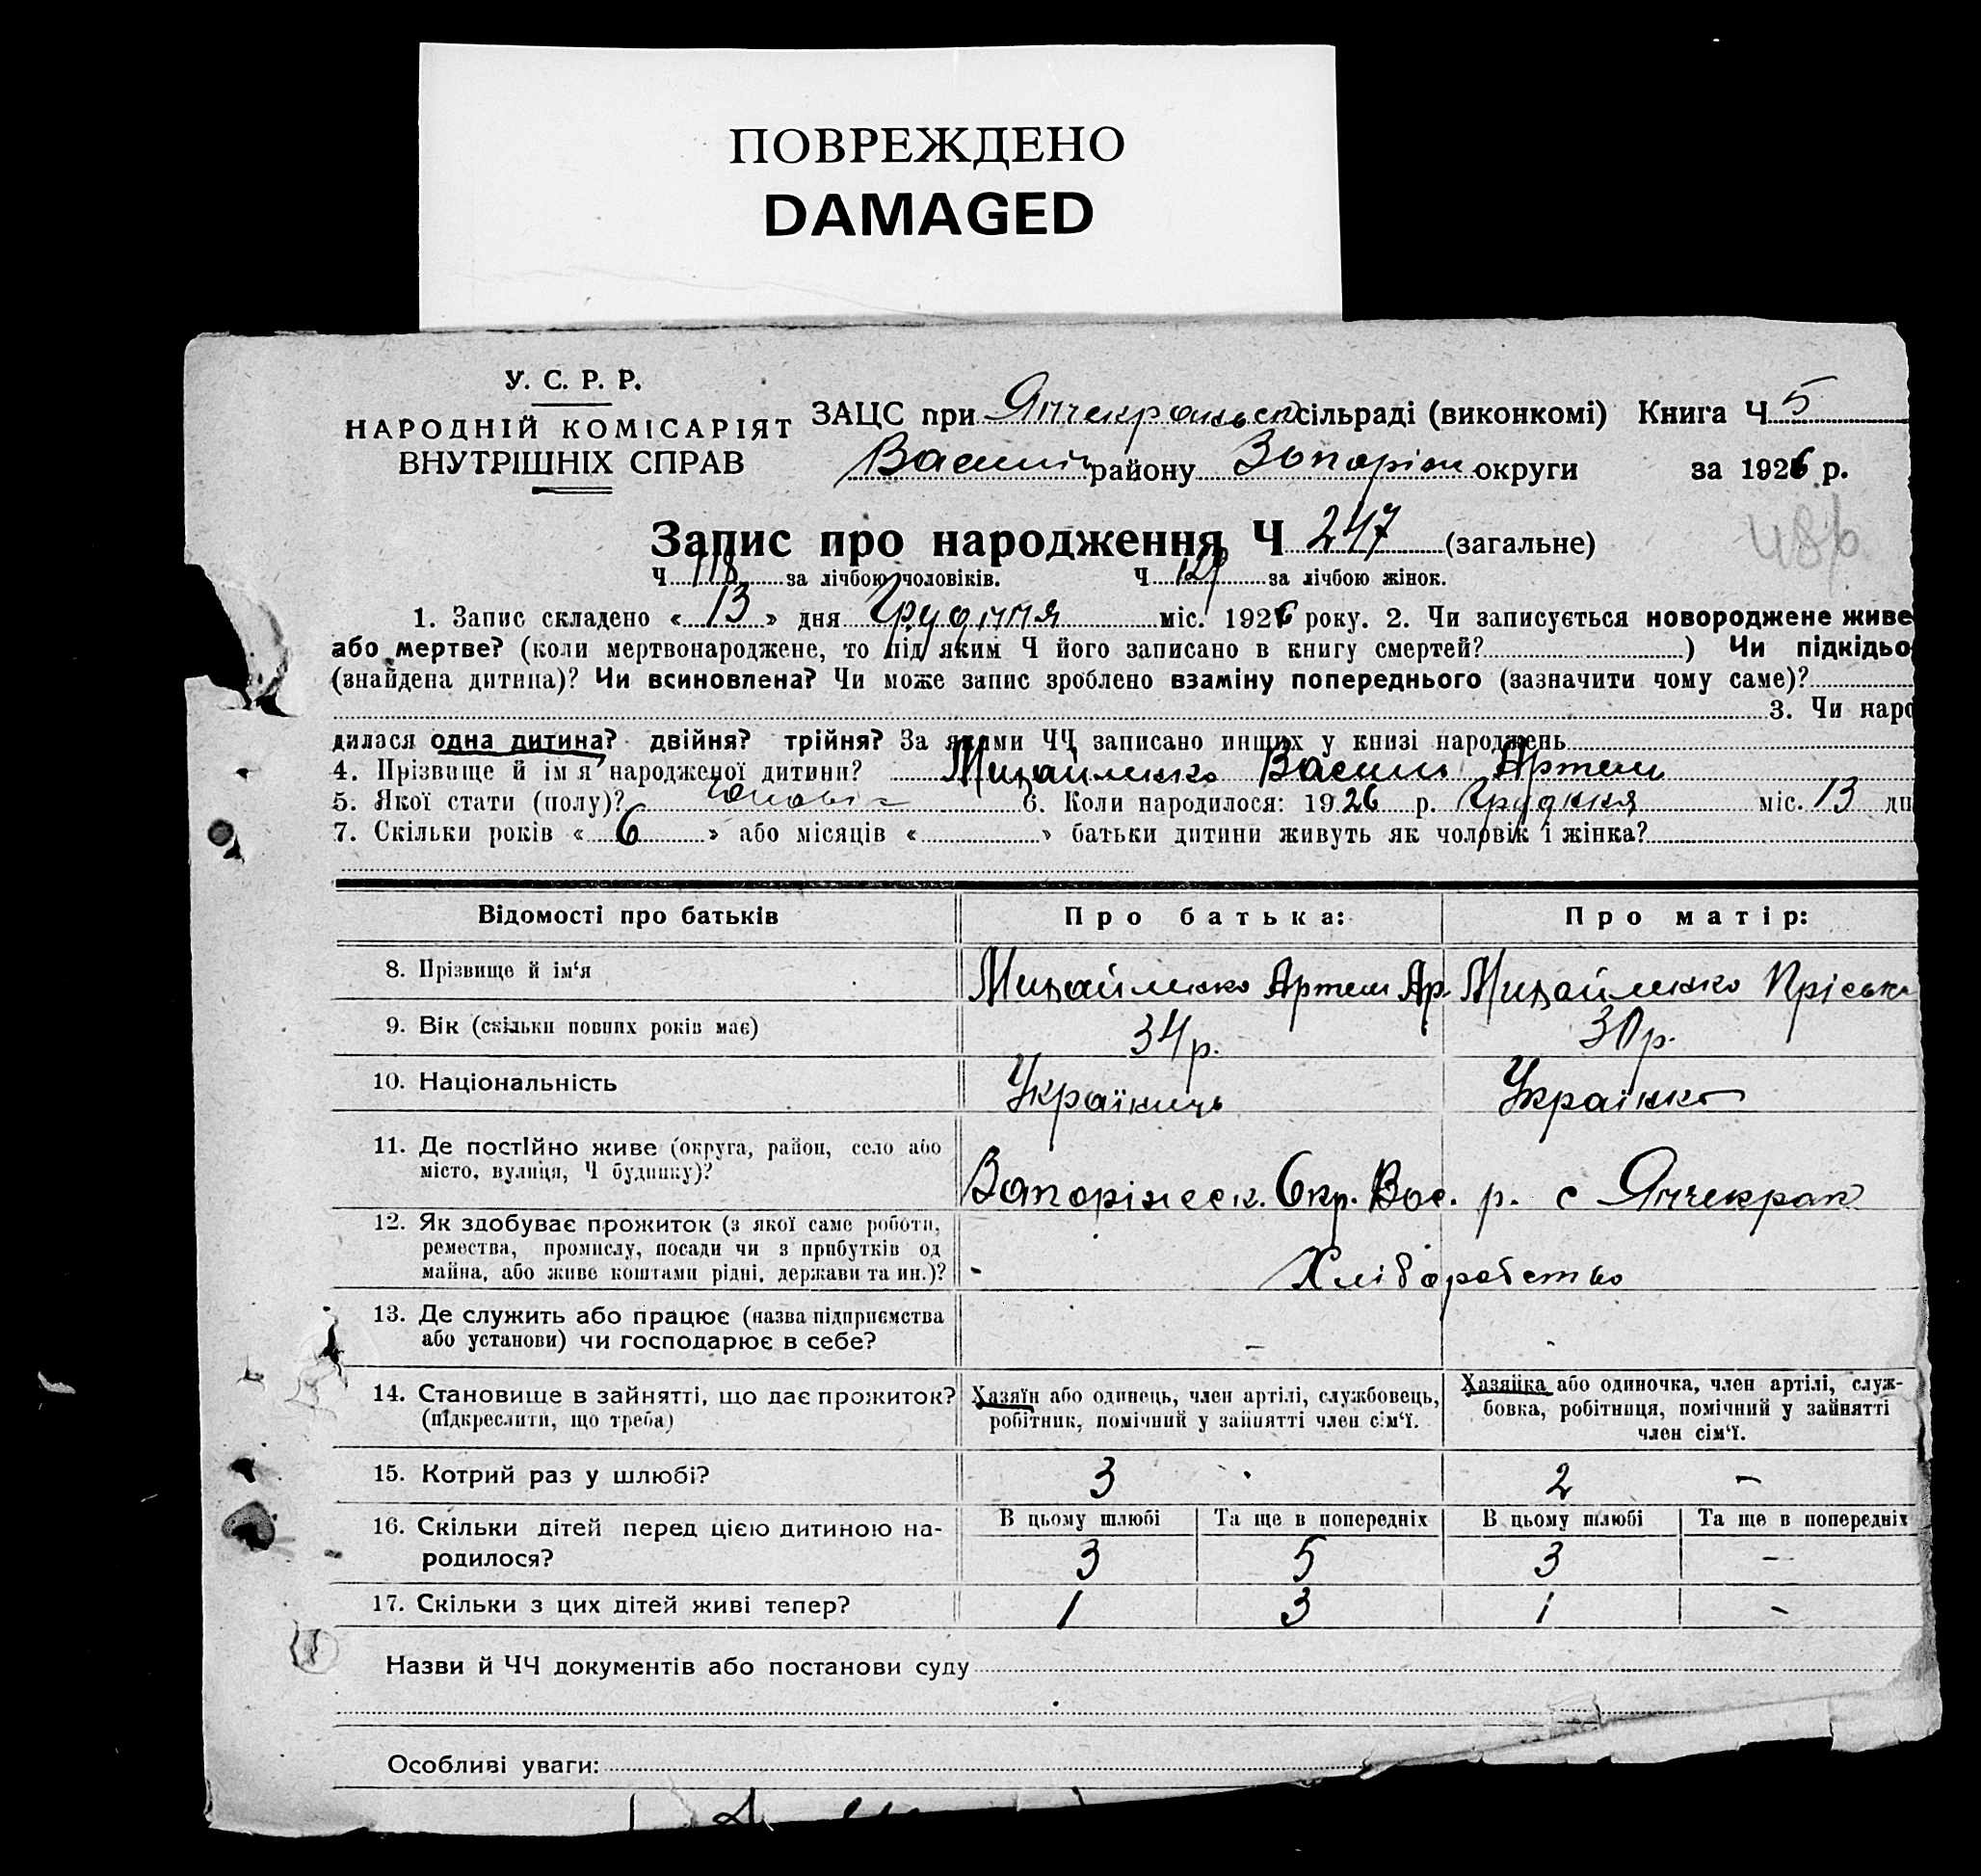 ПОВРЕЖДЕНО
DAMAGED
У. С. Р. Р.
НАРОДНІЙ КОМІСАРІЯТ
ВНУТРІШНІХ СПРАВ
ЗАЦС при Янчекракськ сільраді (виконкомі) Книга Ч 5
Васил району Запоріж округи за 1926 р.
Запис про народження Ч 247 (загальне)
486
Ч 118 за лічбою чоловіків. Ч 129 за лічбою жінок.
1. Запис складено « 13 » дня Грудння міс. 1926 року. 2. Чи записується новороджене живе
або мертве? (коли мертвонароджене, то під яким Ч його записано в книгу смертей? ) Чи підкідьо
(знайдена дитина)? Чи всиновлена? Чи може запис зроблено взаміну попереднього (зазначити чому саме)?
3. Чи наро
дилася одна дитина? двійня? трійня? За якими ЧЧ записано инших у книзі народжень
4. Прізвище й ім'я народженої дитини? Михайленко Василь Артем
5. Якої стати (полу)? 6. Коли народилося: 1926 р. Грудння міс. 13 дн
7. Скільки років « 6 » або місяців « » батьки дитини живуть як чоловік і жінка?
Відомості про батьків Про батька: Про матір:
8. Прізвище й ім'я Михайленко Артем Ар. Михайленко Пріська
9. Вік (скільки повних років має) 34 р. 30 р.
10. Національність Українець Українка
11. Де постійно живе (округа, район, село або
місто, вулиця, Ч будинку)? Запоріжськ. Окр. Вас. р. с Янчекрак
12. Як здобуває прожиток (з якої саме роботи,
ремества, промислу, посади чи з прибутків од
майна, або живе коштами рідні, держави та ин.)? - Хліборобство
13. Де служить або працює (назва підприємства
або установи) чи господарює в себе? - -
14. Становище в зайнятті, що дає прожиток?
(підкреслити, що треба)
Хазяїн або одинець, член артілі, службовець,
робітник, помічний у зайнятті член сім'ї.
Хазяйка або одиночка, член артілі, служ-
бовка, робітниця, помічний у зайнятті
член сім'ї.
15. Котрий раз у шлюбі? 3 2 -
16. Скільки дітей перед цією дитиною на-
родилося?
В цьому шлюбі Та ще в попередніх В цьому шлюбі Та ще в попередніх
3 5 3 -
17. Скільки з цих дітей живі тепер? 1 3 1 -
Назви й ЧЧ документів або постанови суду
Особливі уваги: